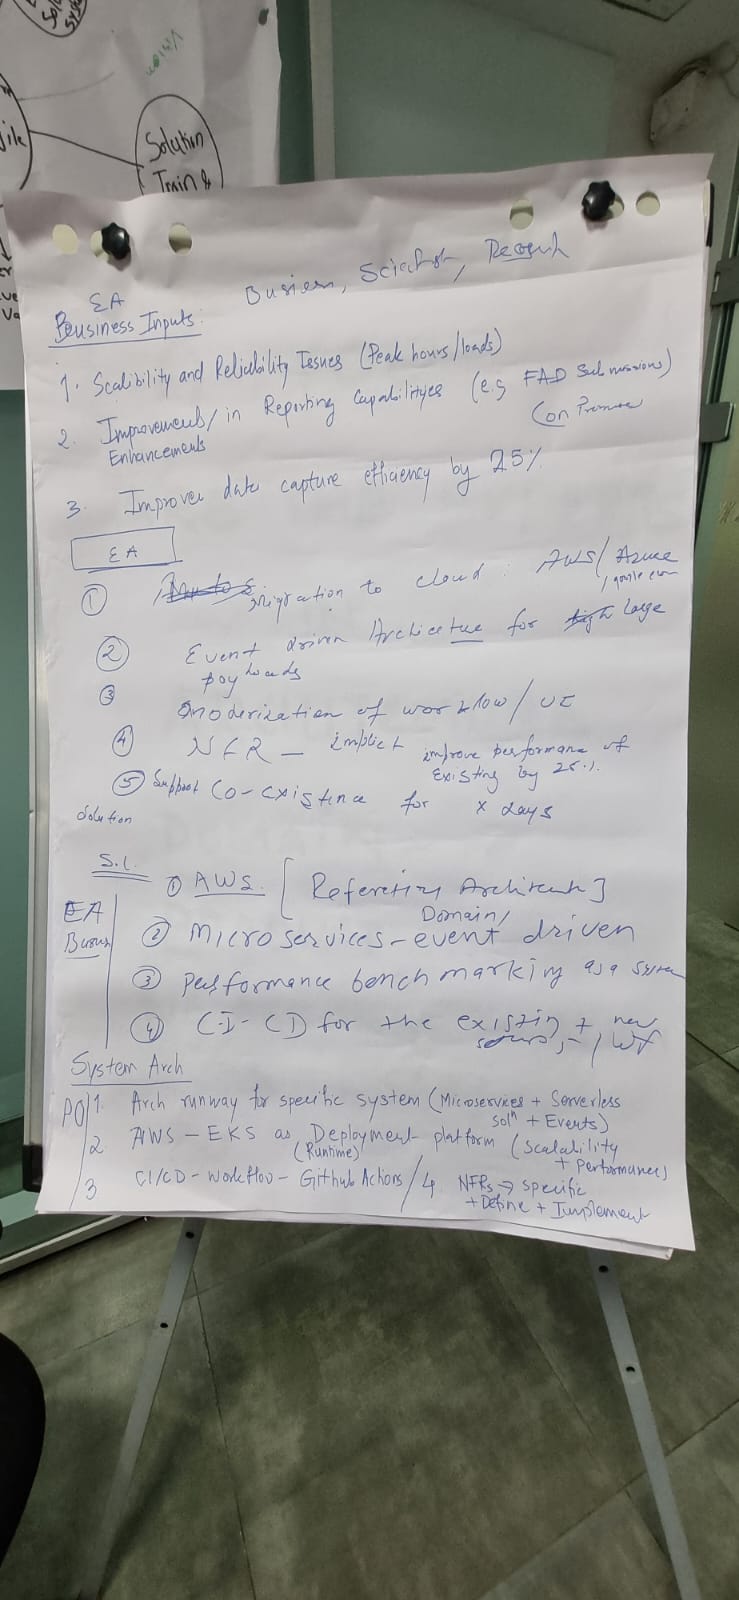 Solution
Train &
EA
Business,
Beusiness Inputs:
1. Scalibility and Reliability Issues (Peak hours/loads)
2. Improvements/ in Reporting Capabilityes (e.g FAD Submissions)
Enhancements
(on Premise
3. Improve data capture efficiency by 25%
EA
① migration to cloud: AWS/Azure
② Event driven Architectue for large
payloads
③ modernization of workflow/UI
④ NFR - implicit improve performance of
Existing by 25%
⑤ Support Co-existence for x days
Solution
EA
① AWS. [Reference Architecture]
Domain/
② Microservices-event driven
③ performance benchmarking as a System
④ CI-CD for the existing + new
System Arch
PO
1. Arch runway for specific system (Microservices + Serverless
Solⁿ + Events)
2 AWS-EKS as Deployment platform (Scalability
(Runtime)
+ Performance)
3 CI/CD-Workflow-Github Actions/4 NFRs → specific
+ Define + Implement